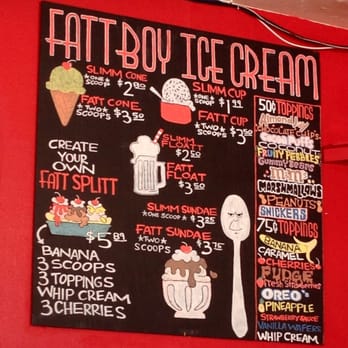 FATT BOY ICE CREAM
SLIMM CONE
*ONE* SCOOP $2.00
FATT CONE
*TWO* SCOOPS $3.50
SLIMM CUP
*ONE* SCOOP $1.99
FATT CUP
*TWO* SCOOPS $3.50
SLIMM FLOAT
$2.50
FATT FLOAT
$3.50
SLIMM SUNDAE
*ONE SCOOP* $3.25
FATT SUNDAE
*TWO* SCOOPS $3.75
CREATE
YOUR
OWN
FATT SPLITT
$5.89
BANANA
3 SCOOPS
3 TOPPINGS
WHIP CREAM
3 CHERRIES
50¢ TOPPINGS
Almonds
CHOCOLATE CHIPS
COCOA PUFFS
COCONUT
FRUITY PEBBLES
GUMMY BEARS
m&m
MARSHMALLOWS
PEANUTS
SNICKERS
75¢ TOPPINGS
BANANA
CARAMEL
CHERRIES
FUDGE
Fresh Strawberries
OREO'S
PINEAPPLE
STRAWBERRY SAUCE
VANILLA WAFERS
WHIP CREAM